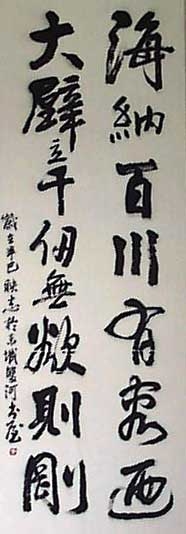 海納百川有容迺
大壁立千仞無欲則剛
歲在辛巳志於城雙河書屋